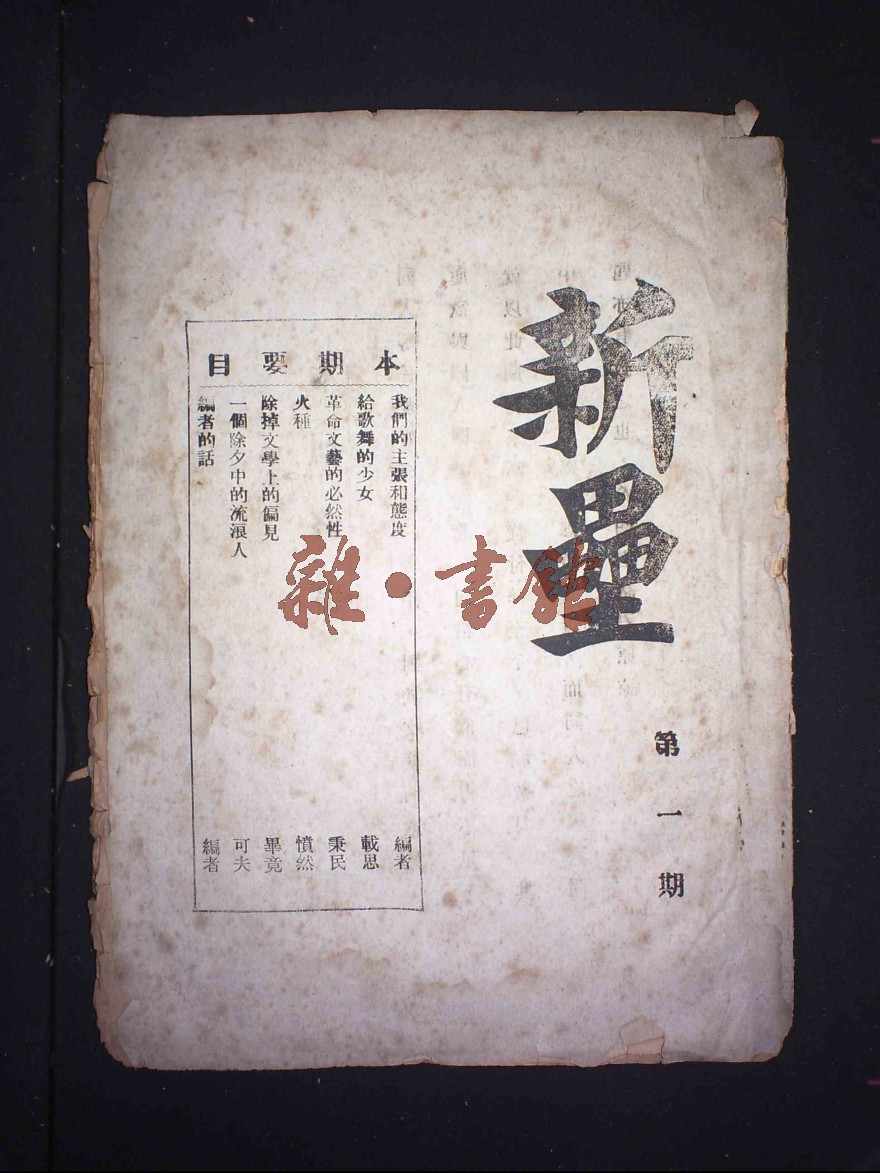 新壘
第一期
本期要目
我們的主張和態度 編者
給歌舞的少女 載思
革命文藝的必然性 秉民
火種 憤然
除掉文學上的偏見 畢竟
一個除夕中的流浪人 可夫
編者的話 編者
雜·書館